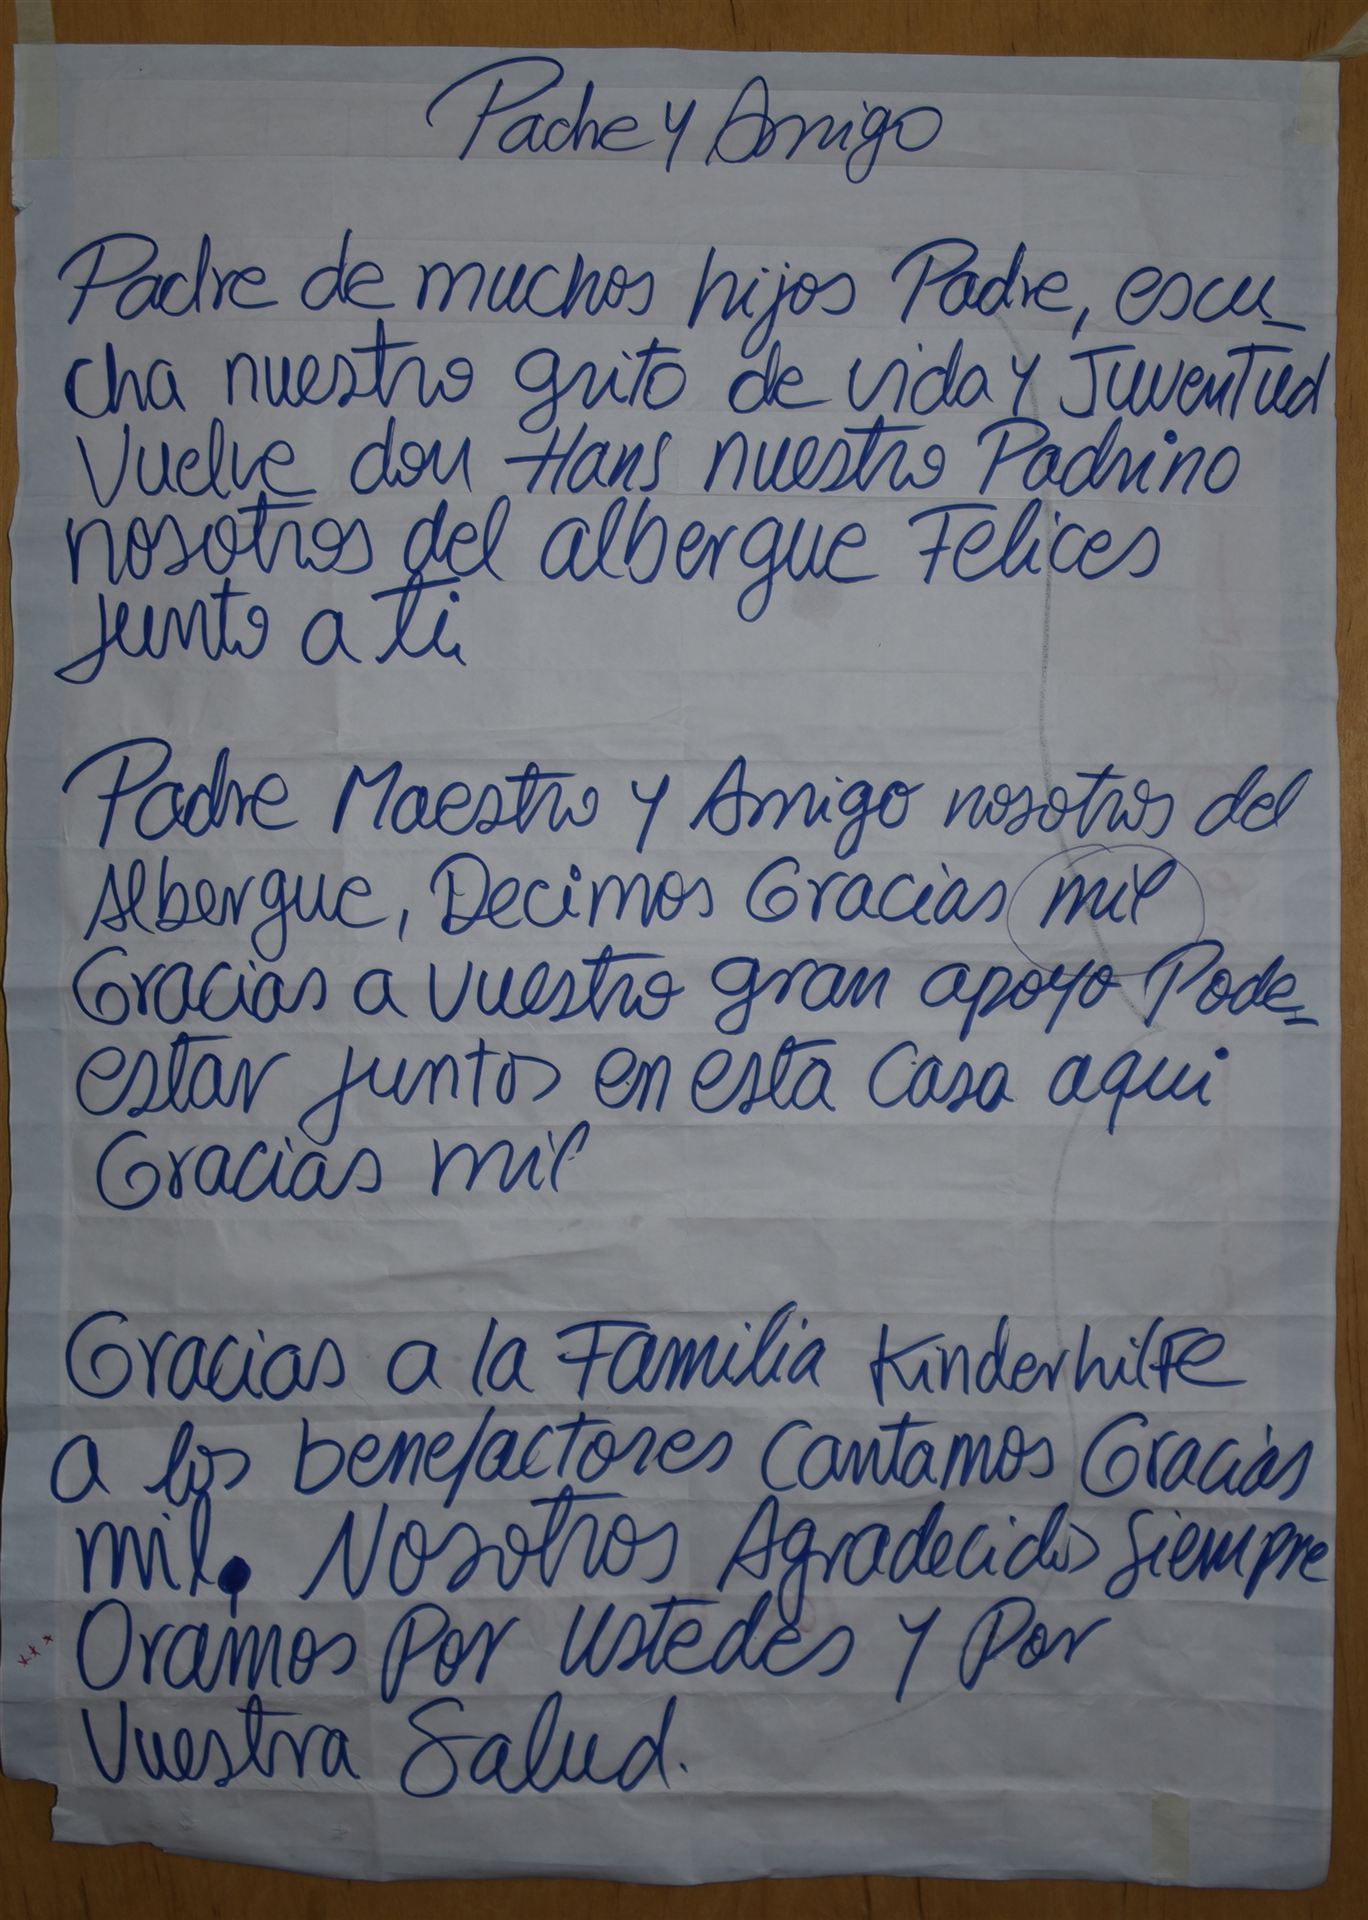 Padre y Amigo
Padre de muchos hijos Padre, escu_
cha nuestro grito de vida y Juventud
Vuelve don Hans nuestro Padrino
nosotros del albergue Felices
junto a ti.
Padre Maestro y Amigo nosotros del
Albergue, Decimos Gracias mil
Gracias a vuestro gran apoyo Pode_
estar juntos en esta Casa aqui
Gracias mil
Gracias a la Familia Kinderhilfe
a los benefactores Cantamos Gracias
mil. Nosotros Agradecidos Siempre
Oramos Por Ustedes y Por
Vuestra Salud.